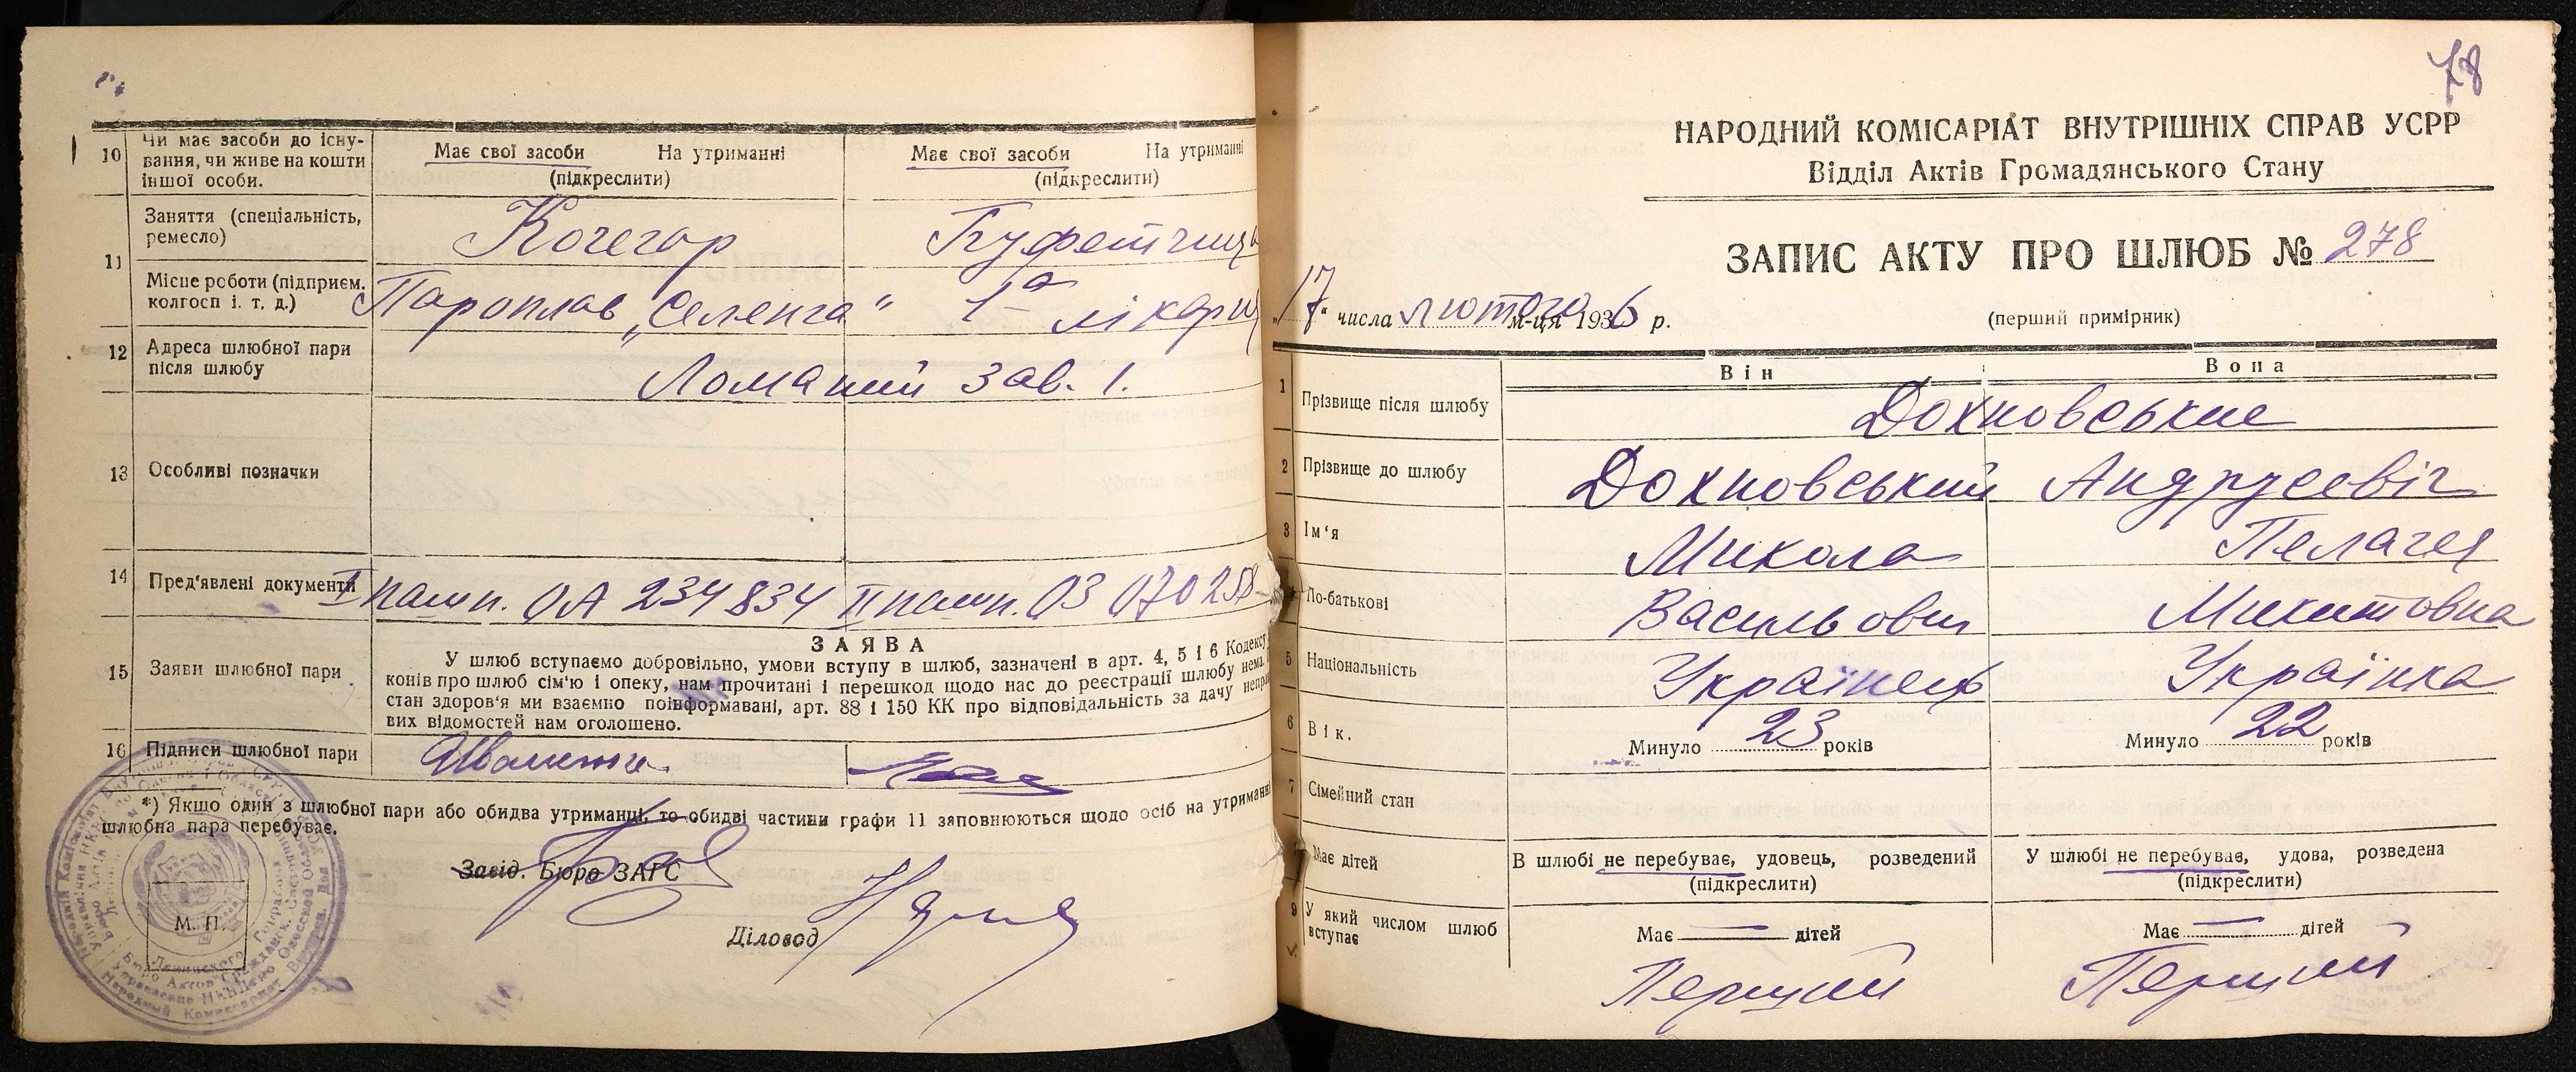 10
Чи має засоби до існу-
вання, чи живе на кошти
іншої особи.
Має свої засоби На утриманні
(підкреслити)
Має свої засоби На утриманні
(підкреслити)
11
Заняття (спеціальність,
ремесло)
Кочегар
Буфетчиця
Місце роботи (підприєм.
колгосп і. т. д.)
Пароплав „Селенга"
1а лікарн
12
Адреса шлюбної пари
після шлюбу
Ломаний зав. 1.
13
Особливі позначки
14
Пред'явлені документи
I пашп. ОА 234834 II пашп. ОЗ 070258
15
Заяви шлюбної пари
ЗАЯВА
У шлюб вступаємо добровільно, умови вступу в шлюб, зазначені в арт. 4, 5 і 6 Кодексу
конів про шлюб сім'ю і опеку, нам прочитані і перешкод щодо нас до реєстрації шлюбу нема.
стан здоров'я ми взаємно поінформавані, арт. 88 і 150 КК про відповідальність за дачу неправ
вих відомостей нам оголошено.
16
Підписи шлюбної пари
*) Якщо один з шлюбної пари або обидва утриманці, то обидві частини графи 11 заповнюються щодо осіб на утриманні
шлюбна пара перебуває.
Завід. Бюро ЗАГС
М. П.
Діловод
78
НАРОДНИЙ КОМІСАРІАТ ВНУТРІШНІХ СПРАВ УСРР
Відділ Актів Громадянського Стану
ЗАПИС АКТУ ПРО ШЛЮБ № 278
„17" числа лютого м-ця 1936 р.
(перший примірник)
Він
Вона
1
Прізвище після шлюбу
Дохновські
2
Прізвище до шлюбу
Дохновський
Андрусевіч
3
Ім'я
Микола
Пелагея
По-батькові
Васильович
Микитовна
5
Національність
Українець
Українка
6
Вік.
Минуло 23 років
Минуло 22 років
7
Сімейний стан
В шлюбі не перебуває, удовець, розведений
(підкреслити)
У шлюбі не перебував, удова, розведена
(підкреслити)
Має дітей
Має — дітей
Має — дітей
9
У який числом шлюб
вступає
Перший
Перший